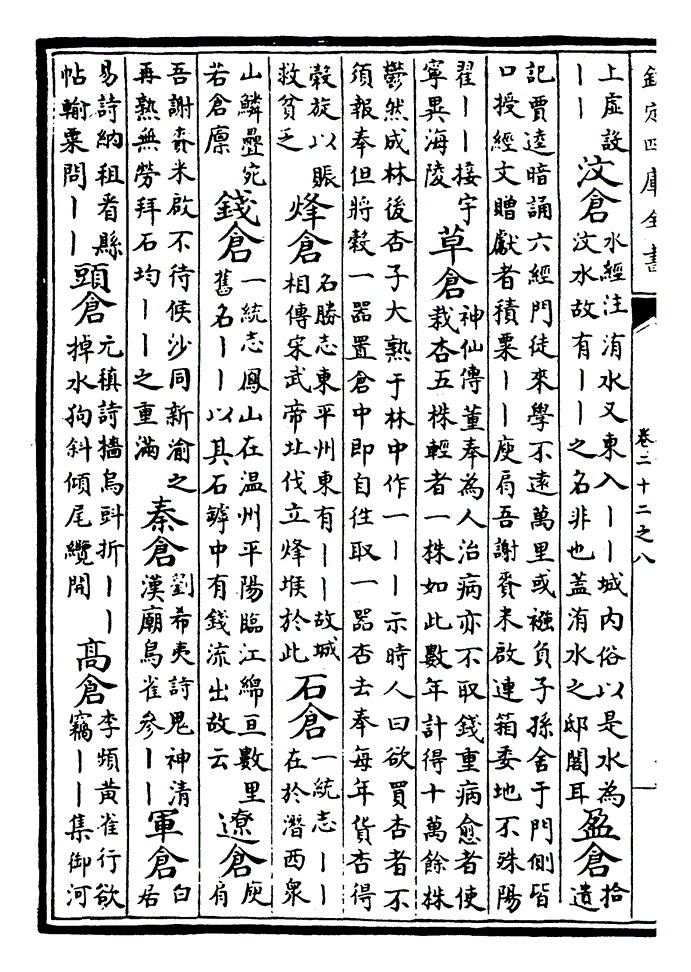 欽定四庫全書
卷二十二之八
上虛設
丨丨
汶倉
水經注洧水又東入丨丨城内俗以是水為
汶水故有丨丨之名非也蓋洧水之邸閣耳
盈倉
拾
遺
記賈逵暗誦六經門徒來學不遠萬里或襁負子孫舍于門側皆
口授經文贈獻者積粟丨丨庾肩吾謝賚米啟連箱委地不殊陽
翟丨丨接宇
寧異海陵
草倉
神仙傳董奉為人治病亦不取錢重病愈者使
栽杏五株輕者一株如此數年計得十萬餘株
鬱然成林後杏子大熟于林中作一丨丨示時人曰欲買杏者不
須報奉但將穀一器置倉中即自往取一器杏去奉每年貨杏得
穀旋以賑
救貧乏
烽倉
名勝志東平州東有丨丨故城
相傳宋武帝北伐立烽堠於此
石倉
一統志丨丨
在於潛西衆
山鱗疊宛
若倉廪
錢倉
一統志鳳山在温州平陽臨江綿亘數里
舊名丨丨以其石罅中有錢流出故云
遼倉
庾
肩
吾謝賚米啟不待候沙同新渝之
再熟無勞拜石均丨丨之重滿
秦倉
劉希夷詩鬼神清
漢廟鳥雀參丨丨
軍倉
白
居
易詩納租看縣
帖輸粟問丨丨
頭倉
元稹詩檣烏斜折丨丨
掉水狗斜傾尾纜開
高倉
李頻黄雀行欲
竊丨丨集御河